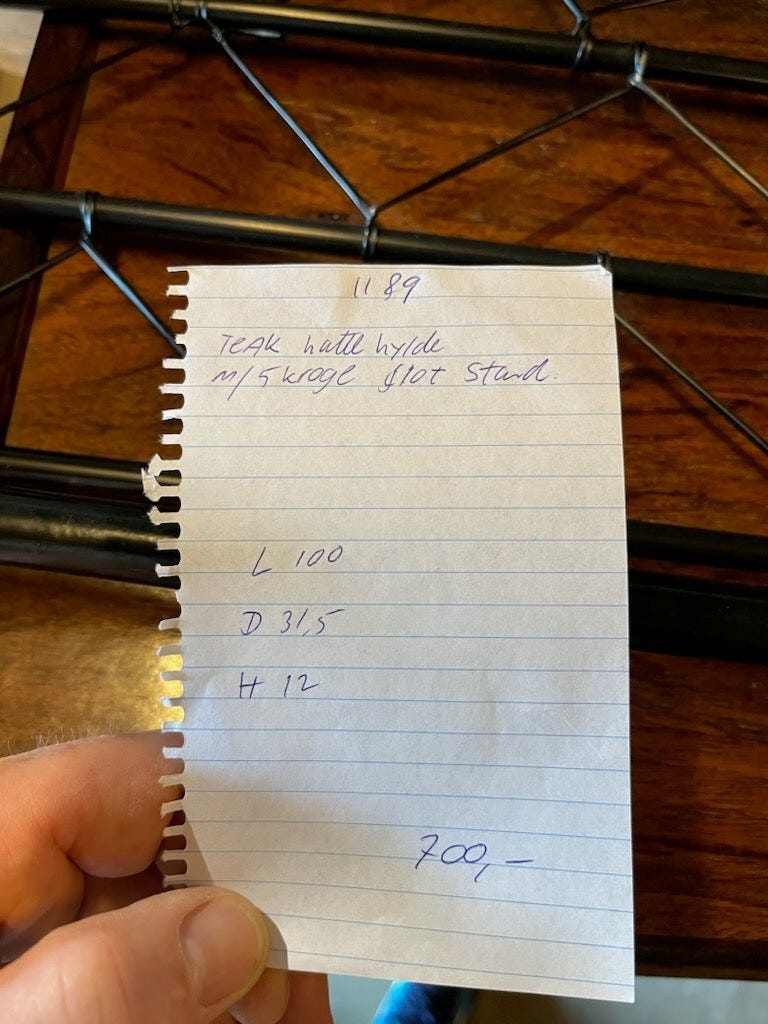 1189
TEAK hatte hylde
m/5 kroge flot stand.
L 100
D 31,5
H 12
700,-